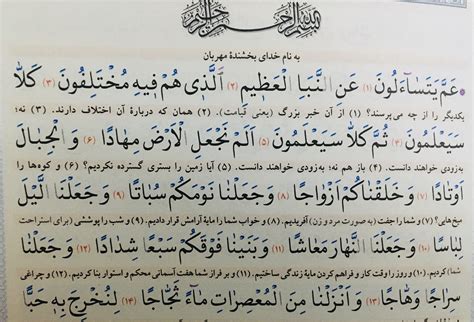 بسم الله الرحمن الرحیم
به نام خدای بخشندهٔ مهربان
عَمَّ يَتَسَآءَلُونَ (۱) عَنِ النَّبَاِ الْعَظِيمِ (۲) اَلَّذِي هُمْ فِيهِ مُخْتَلِفُونَ (۳) كَلَّا
یکدیگر را از چه می‌پرسند؟ (۱) از آن خبر بزرگ (یعنی قیامت). (۲) همان که دربارهٔ آن اختلاف دارند. (۳) نه؛
سَيَعْلَمُونَ (۴) ثُمَّ كَلَّا سَيَعْلَمُونَ (۵) اَلَمْ نَجْعَلِ الْاَرْضَ مِهَادًا (۶) وَ الْجِبَالَ
به‌زودی خواهند دانست. (۴) باز هم نه؛ به‌زودی خواهند دانست. (۵) آیا زمین را بستری گسترده نکردیم؟ (۶) و کوه‌ها را
اَوْتَادًا (۷) وَ خَلَقْنَاكُمْ اَزْوَاجًا (۸) وَ جَعَلْنَا نَوْمَكُمْ سُبَاتًا (۹) وَ جَعَلْنَا اللَّيْلَ
میخ‌هایی؟ (۷) و شما را جفت (به صورت مرد و زن) آفریدیم. (۸) و خواب شما را مایهٔ آرامش قرار دادیم. (۹) و شب را پوششی (برای استراحت
لِبَاسًا (۱۰) وَ جَعَلْنَا النَّهَارَ مَعَاشًا (۱۱) وَ بَنَيْنَا فَوْقَكُمْ سَبْعًا شِدَادًا (۱۲) وَ جَعَلْنَا
شما) کردیم. (۱۰) و روز را وقت کار و فراهم کردن مایهٔ زندگی ساختیم. (۱۱) و بر فراز شما هفت آسمانی محکم و استوار بنا کردیم. (۱۲) و چراغی
سِرَاجًا وَهَّاجًا (۱۳) وَ اَنْزَلْنَا مِنَ الْمُعْصِرَاتِ مَآءً ثَجَّاجًا (۱۴) لِنُخْرِجَ بِهٖ حَبًّا